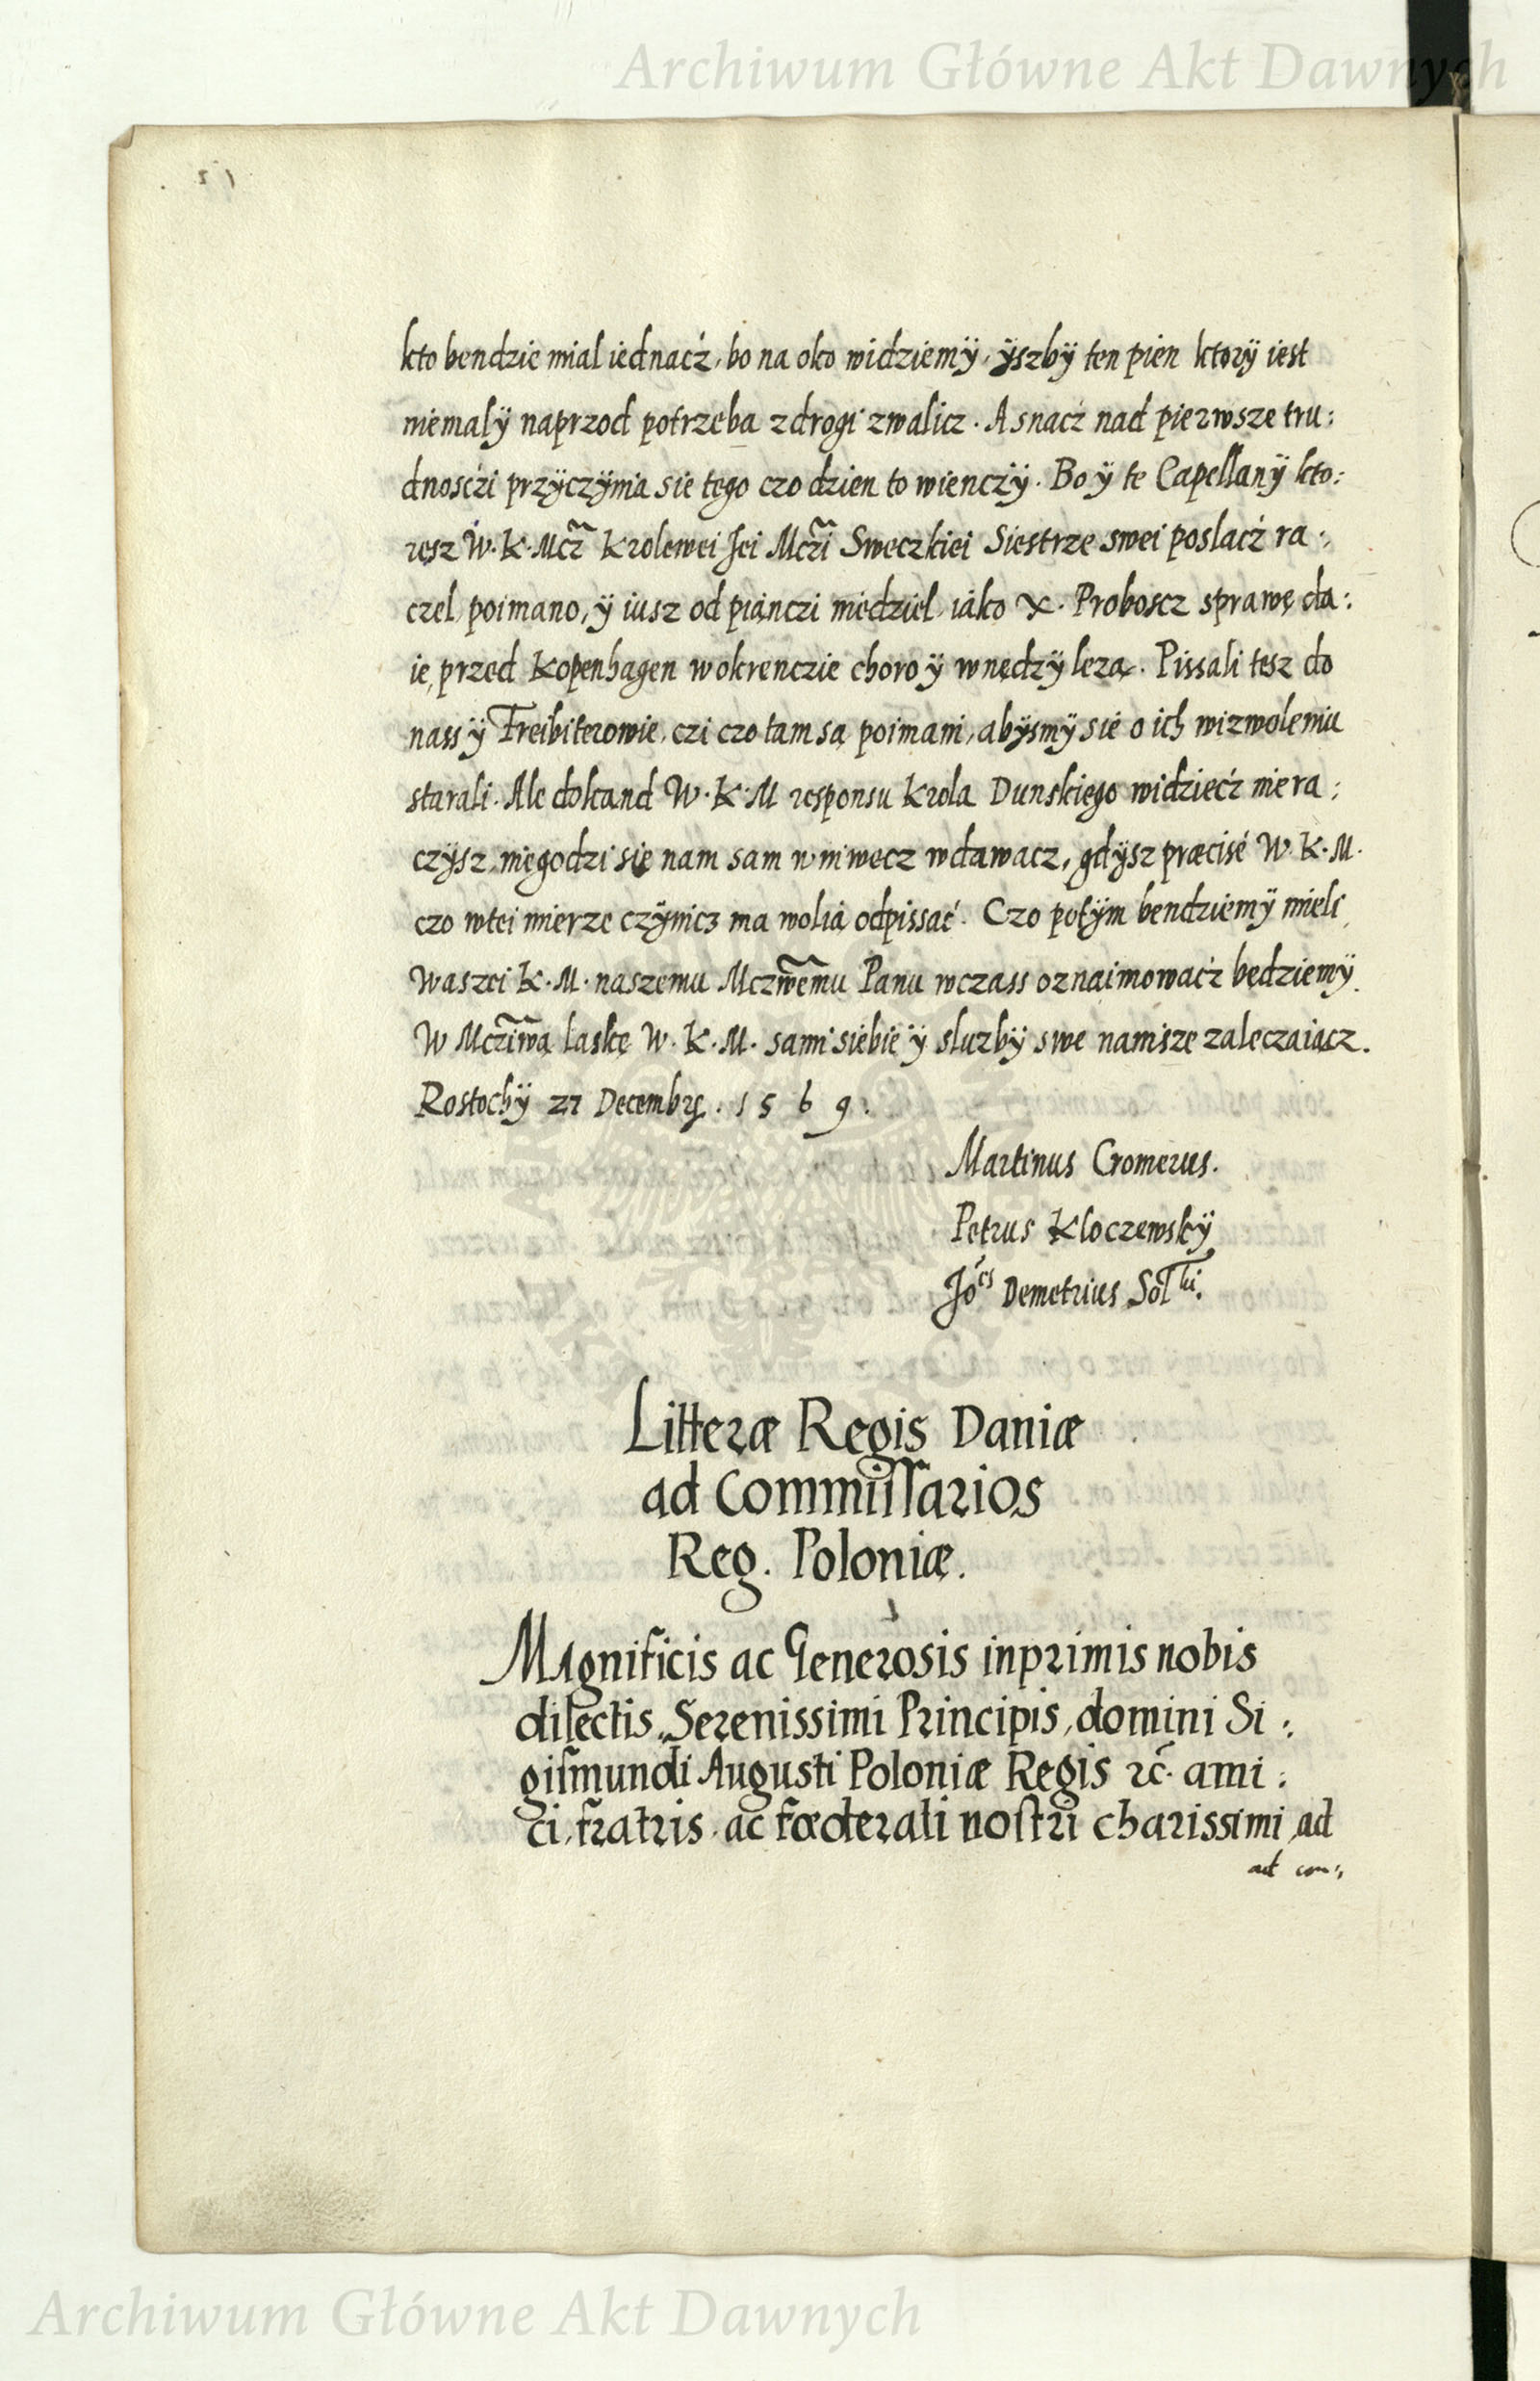 Archiwum Główne Akt Dawnych
kto bendzie mial iednacż, bo na oko widziemÿ, ÿszbÿ ten pien ktorÿ iest
niemalÿ naprzod potrzeba z drogi zwalicz. A snacż nad pierwsze tru:
dnosczi przÿczÿnia sie tego czo dzien to wienczÿ. Bo ÿ te Capellanÿ kto:
resz W. K. Mcz̃ Krolewei Jei Mcz̃i Sweczkiei Siestrze swei poslacż ra:
czel, poimano, ÿ iusz od pianczi niedziel, iako X. Proboscz sprawę da:
ie, przed Kopenhagen w okrenczie choro ÿ w nędzÿ leza. Pissali tesz do
nass ÿ Freibiterowie, czi czo tam sa poimani, abÿsmÿ sie o ich wizwoleniu
starali. Ale dokand W. K. M responsu Krola Dunskiego widziecż nie ra:
czÿsz, niegodzi się nam sam w niwecz wdawacz, gdÿsz præcisé W. K. M.
czo w tei mierze czÿnicz ma wolia odpissać. Czo potÿm bendziemÿ mieli,
Waszei K. M. naszemu Mczw̃emu Panu w czass oznaimowacż będziemÿ.
W Mcz̃iwą laskę W. K. M. sami siebie ÿ sluzbÿ swe nanisze zaleczaiącz.
Rostochÿ 27 Decembrꝭ. 1569.
Martinus Cromerus.
Petrus Kloczewskÿ
Joẽs Demetrius Sol ki.
Litteræ Regis Daniæ
ad Commissarios
Reg. Poloniæ.
Magnificis ac Generosis inprimis nobis
dilectis, Serenissimi Principis, domini Si:
gismundi Augusti Poloniæ Regis ꝛc̃. ami:
ci, fratris, ac fœderati nostri charissimi, ad
ad com:
Archiwum Główne Akt Dawnych